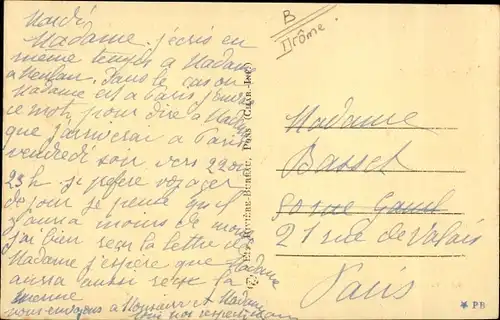 Mardi
Madame j'écris en
même temps à Madame
a Menton. Dans le cas ou
Madame est a Paris j'envoie
ce mot pour dire a Madame
que j'arriverai a Paris
vendredi soir vers 22 ou
23 h. je préfère voyager
de jour je pense qu'il
y aura moins de monde
j'ai bien reçu la lettre de
Madame j'espère que Madame
aura aussi reçu la
mienne
nous envoyons a Monsieur et Madame
tous nos respects
B
Drôme.
RIVIÈRE-BUREAU, PONS (CHAR.-INF.)
Madame
Basset
rue
21 rue de Valois
Paris
★ PB